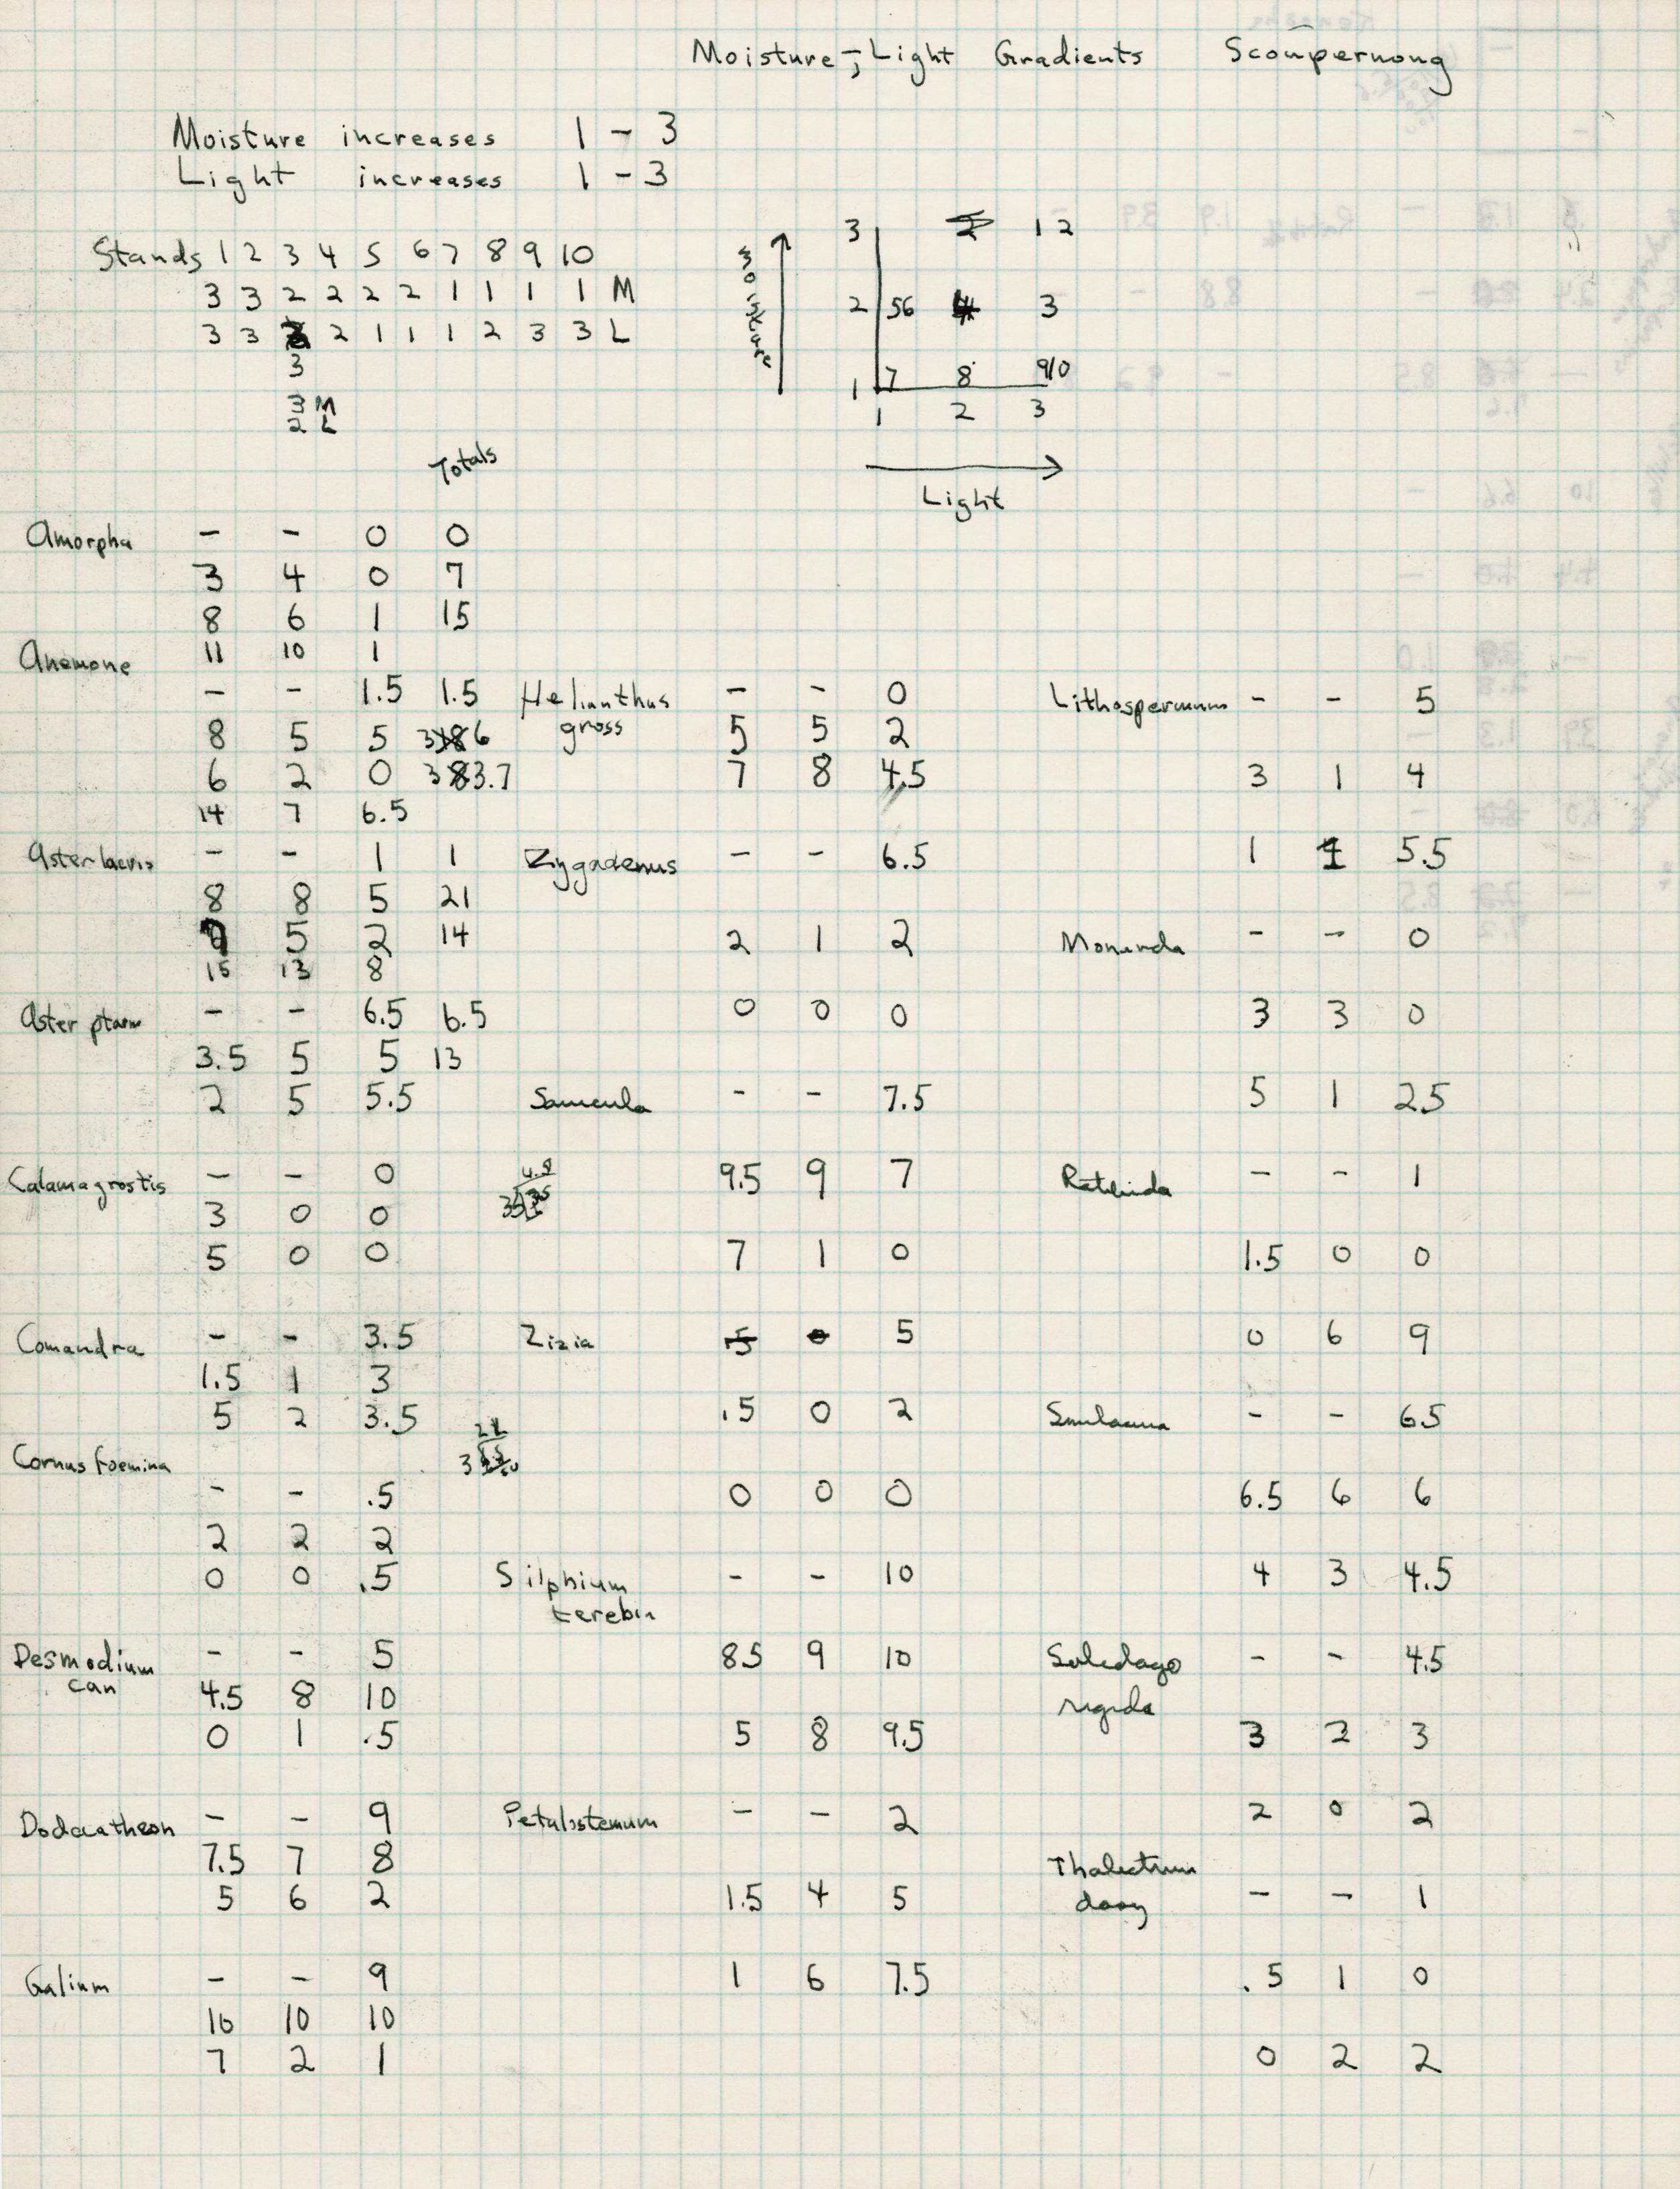 Moisture - Light Gradients Scoupernong
Moisture increases 1 - 3
Light increases 1 - 3
Stands 1 2 3 4 5 6 7 8 9 10
3 3 2 2 2 2 1 1 1 1 M
3 3 2 1 1 1 2 3 3 L
3
3 M
2 L
moisture
3 2 1 2
2 56 4 3
1 7 8 910
1 2 3
Light
Totals
Amorpha - - 0 0
3 4 0 7
8 6 1 15
11 10 1
Anemone
- - 1.5 1.5
8 5 5 6
6 2 0 3.7
14 7 6.5
Aster laevis - - 1 1
8 8 5 21
5 2 14
15 13 8
Aster ptarm - - 6.5 6.5
3.5 5 5 13
2 5 5.5
Calamagrostis - - 0
3 0 0
5 0 0
Comandra - - 3.5
1.5 1 3
5 2 3.5
Cornus foemina
- - .5
2 2 2
0 0 .5
Desmodium can - - 5
4.5 8 10
0 1 .5
Dodecatheon - - 9
7.5 7 8
5 6 2
Galium - - 9
10 10 10
7 2 1
Helianthus - - 0
gross 5 5 2
7 8 4.5
Zygadenus - - 6.5
2 1 2
0 0 0
Sanicula - - 7.5
9.5 9 7
7 1 0
Zizia 5 0 5
.5 0 2
0 0 0
Silphium - - 10
terebin
8.5 9 10
5 8 9.5
Petalostemum - - 2
1.5 4 5
1 6 7.5
Lithospermum - - 5
3 1 4
1 1 5.5
Monarda - - 0
3 3 0
5 1 2.5
Ratibida - - 1
1.5 0 0
0 6 9
Smilacina - - 6.5
6.5 6 6
4 3 4.5
Solidago - - 4.5
rigida
3 2 3
2 0 2
Thalictrum
dasy - - 1
.5 1 0
0 2 2